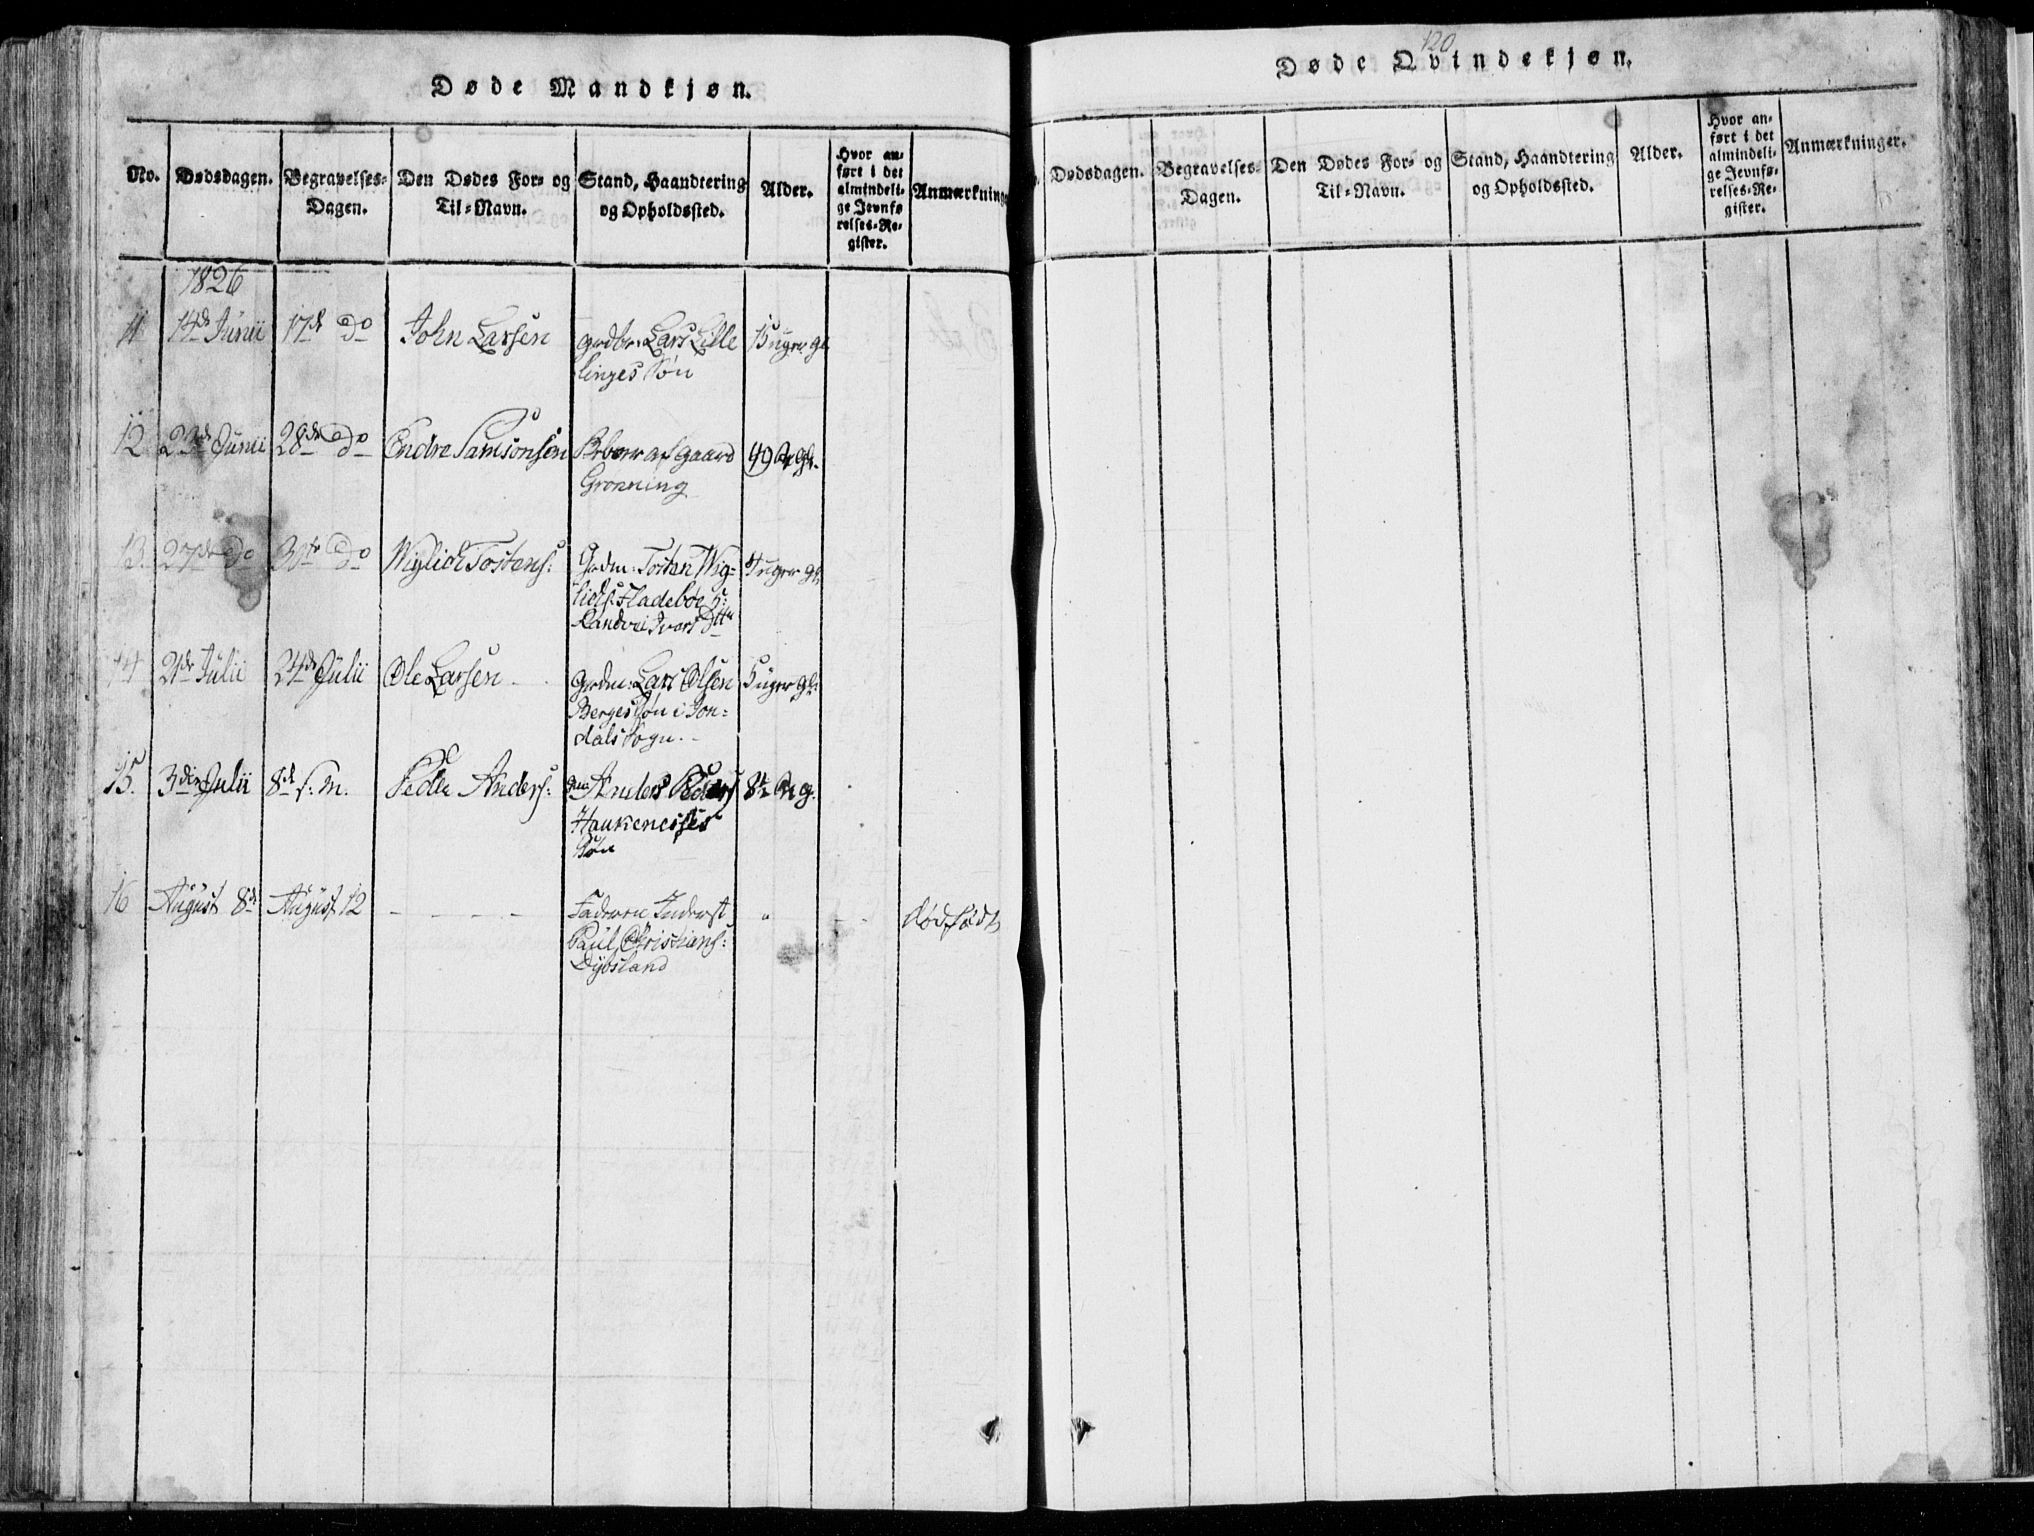 Døde Mandkjøn.
No. Dødsdagen. Begravelses-Dagen. Den Dødes For- og Til-Navn. Stand, Haandtering og Opholdssted. Alder. Hvor anført i det almindelige Jevnførelses-Register. Anmærkninge
1826
11 14de Junii 17de Do John Larsen Grdbr: Lars Lille
linges Søn
12 Junii 28de Do Endre Samsonsen af Gaard 49 Aar gl.
Grønning
13. 27de Do 30te Do Wiglich Tostens: Grdm: Tosten Wig=
lichs: Fladebøe
Randvei Ivars
14 21de Julii 24de Julii Ole Larsen Grdm: Lars Olsen 5 uger gl:
Berges Søn i Jon=
dals Sogn.
15. 3die Julii 8de s: M. Peder Anders: Anders Peders
Haukenesses
Søn
16 August 8de August 12 - - - - Faderen Inderst dødfødt
Paul Christians:
Dybsland
120
Døde Qvindekjøn.
Dødsdagen. Begravelses-Dagen. Den Dødes For- og Til-Navn. Stand, Haandtering og Opholdssted. Alder. Hvor anført i det almindelige Jevnførelses-Register. Anmærkninger.